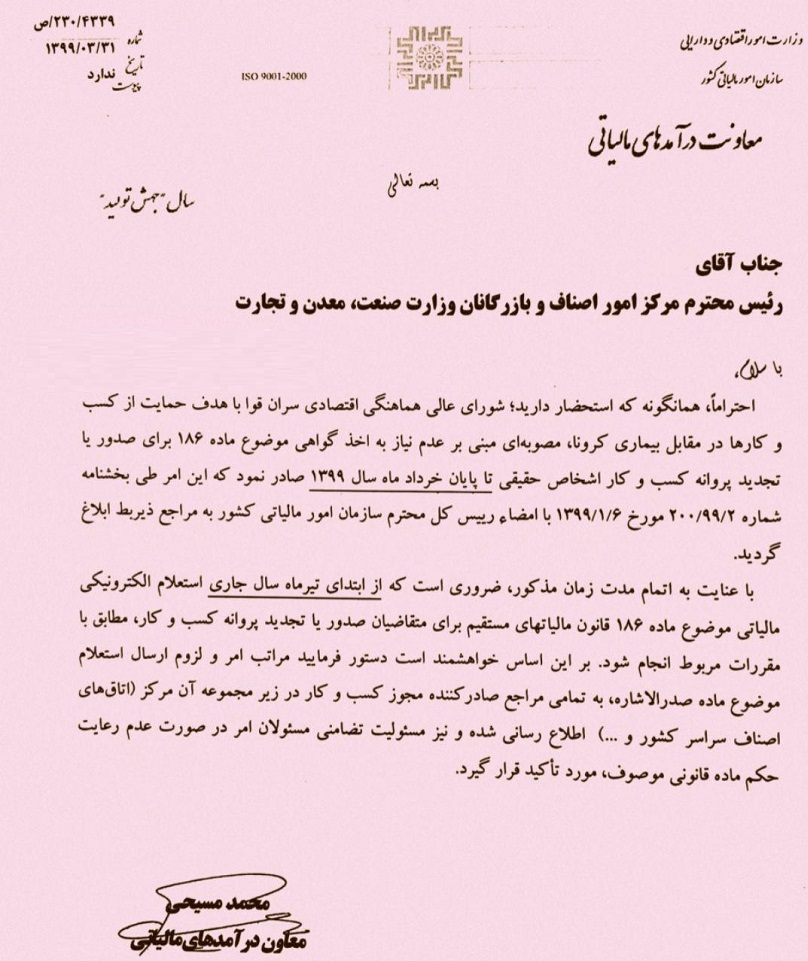 وزارت امور اقتصادی و دارایی
سازمان امور مالیاتی کشور
ISO 9001-2000
شماره ۲۳۰/۴۳۳۹/ص
تاریخ ۱۳۹۹/۰۳/۳۱
پیوست ندارد
معاونت درآمدهای مالیاتی
بسمه تعالی
سال "جهش تولید"
جناب آقای
رئیس محترم مرکز امور اصناف و بازرگانان وزارت صنعت، معدن و تجارت
با سلام،
احتراماً، همانگونه که استحضار دارید؛ شورای عالی هماهنگی اقتصادی سران قوا با هدف حمایت از کسب
و کارها در مقابل بیماری کرونا، مصوبه‌ای مبنی بر عدم نیاز به اخذ گواهی موضوع ماده ۱۸۶ برای صدور یا
تجدید پروانه کسب و کار اشخاص حقیقی تا پایان خرداد ماه سال ۱۳۹۹ صادر نمود که این امر طی بخشنامه
شماره ۲۰۰/۹۹/۲ مورخ ۱۳۹۹/۱/۶ با امضاء رییس کل محترم سازمان امور مالیاتی کشور به مراجع ذیربط ابلاغ
گردید.
با عنایت به اتمام مدت زمان مذکور، ضروری است که از ابتدای تیرماه سال جاری استعلام الکترونیکی
مالیاتی موضوع ماده ۱۸۶ قانون مالیاتهای مستقیم برای متقاضیان صدور یا تجدید پروانه کسب و کار، مطابق با
مقررات مربوط انجام شود. بر این اساس خواهشمند است دستور فرمایید مراتب امر و لزوم ارسال استعلام
موضوع ماده صدرالاشاره، به تمامی مراجع صادرکننده مجوز کسب و کار در زیر مجموعه آن مرکز (اتاق‌های
اصناف سراسر کشور و ...) اطلاع رسانی شده و نیز مسئولیت تضامنی مسئولان امر در صورت عدم رعایت
حکم ماده قانونی موصوف، مورد تأکید قرار گیرد.
محمد مسیحی
معاون درآمدهای مالیاتی